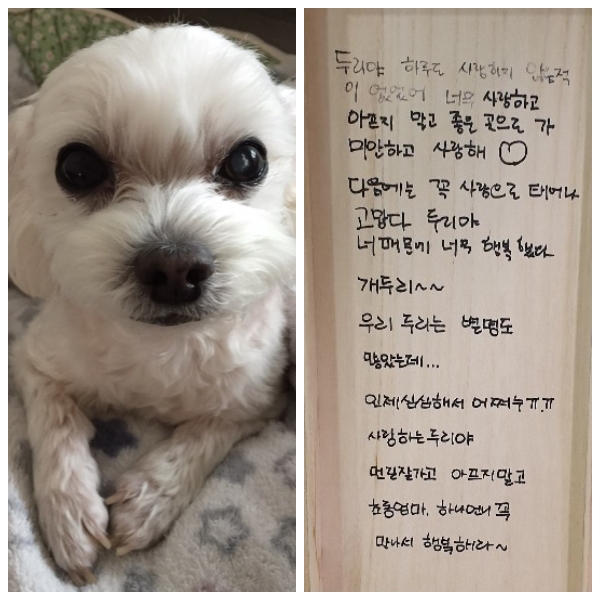 두리야 하루도 사랑하지 않은적
이 없었어 너무 사랑하고
아프지 말고 좋은 곳으로 가
미안하고 사랑해 ♡
다음에는 꼭 사람으로 태어나
고맙다 두리야
너 때문에 너무 행복했다
개두리~~
우리 두리는 별명도
많았는데...
인제 심심해서 어쩌누ㅠ.ㅠ
사랑하는두리야
먼길잘가고 아프지말고
초롱엄마, 하나언니 꼭
만나서 행복해라~